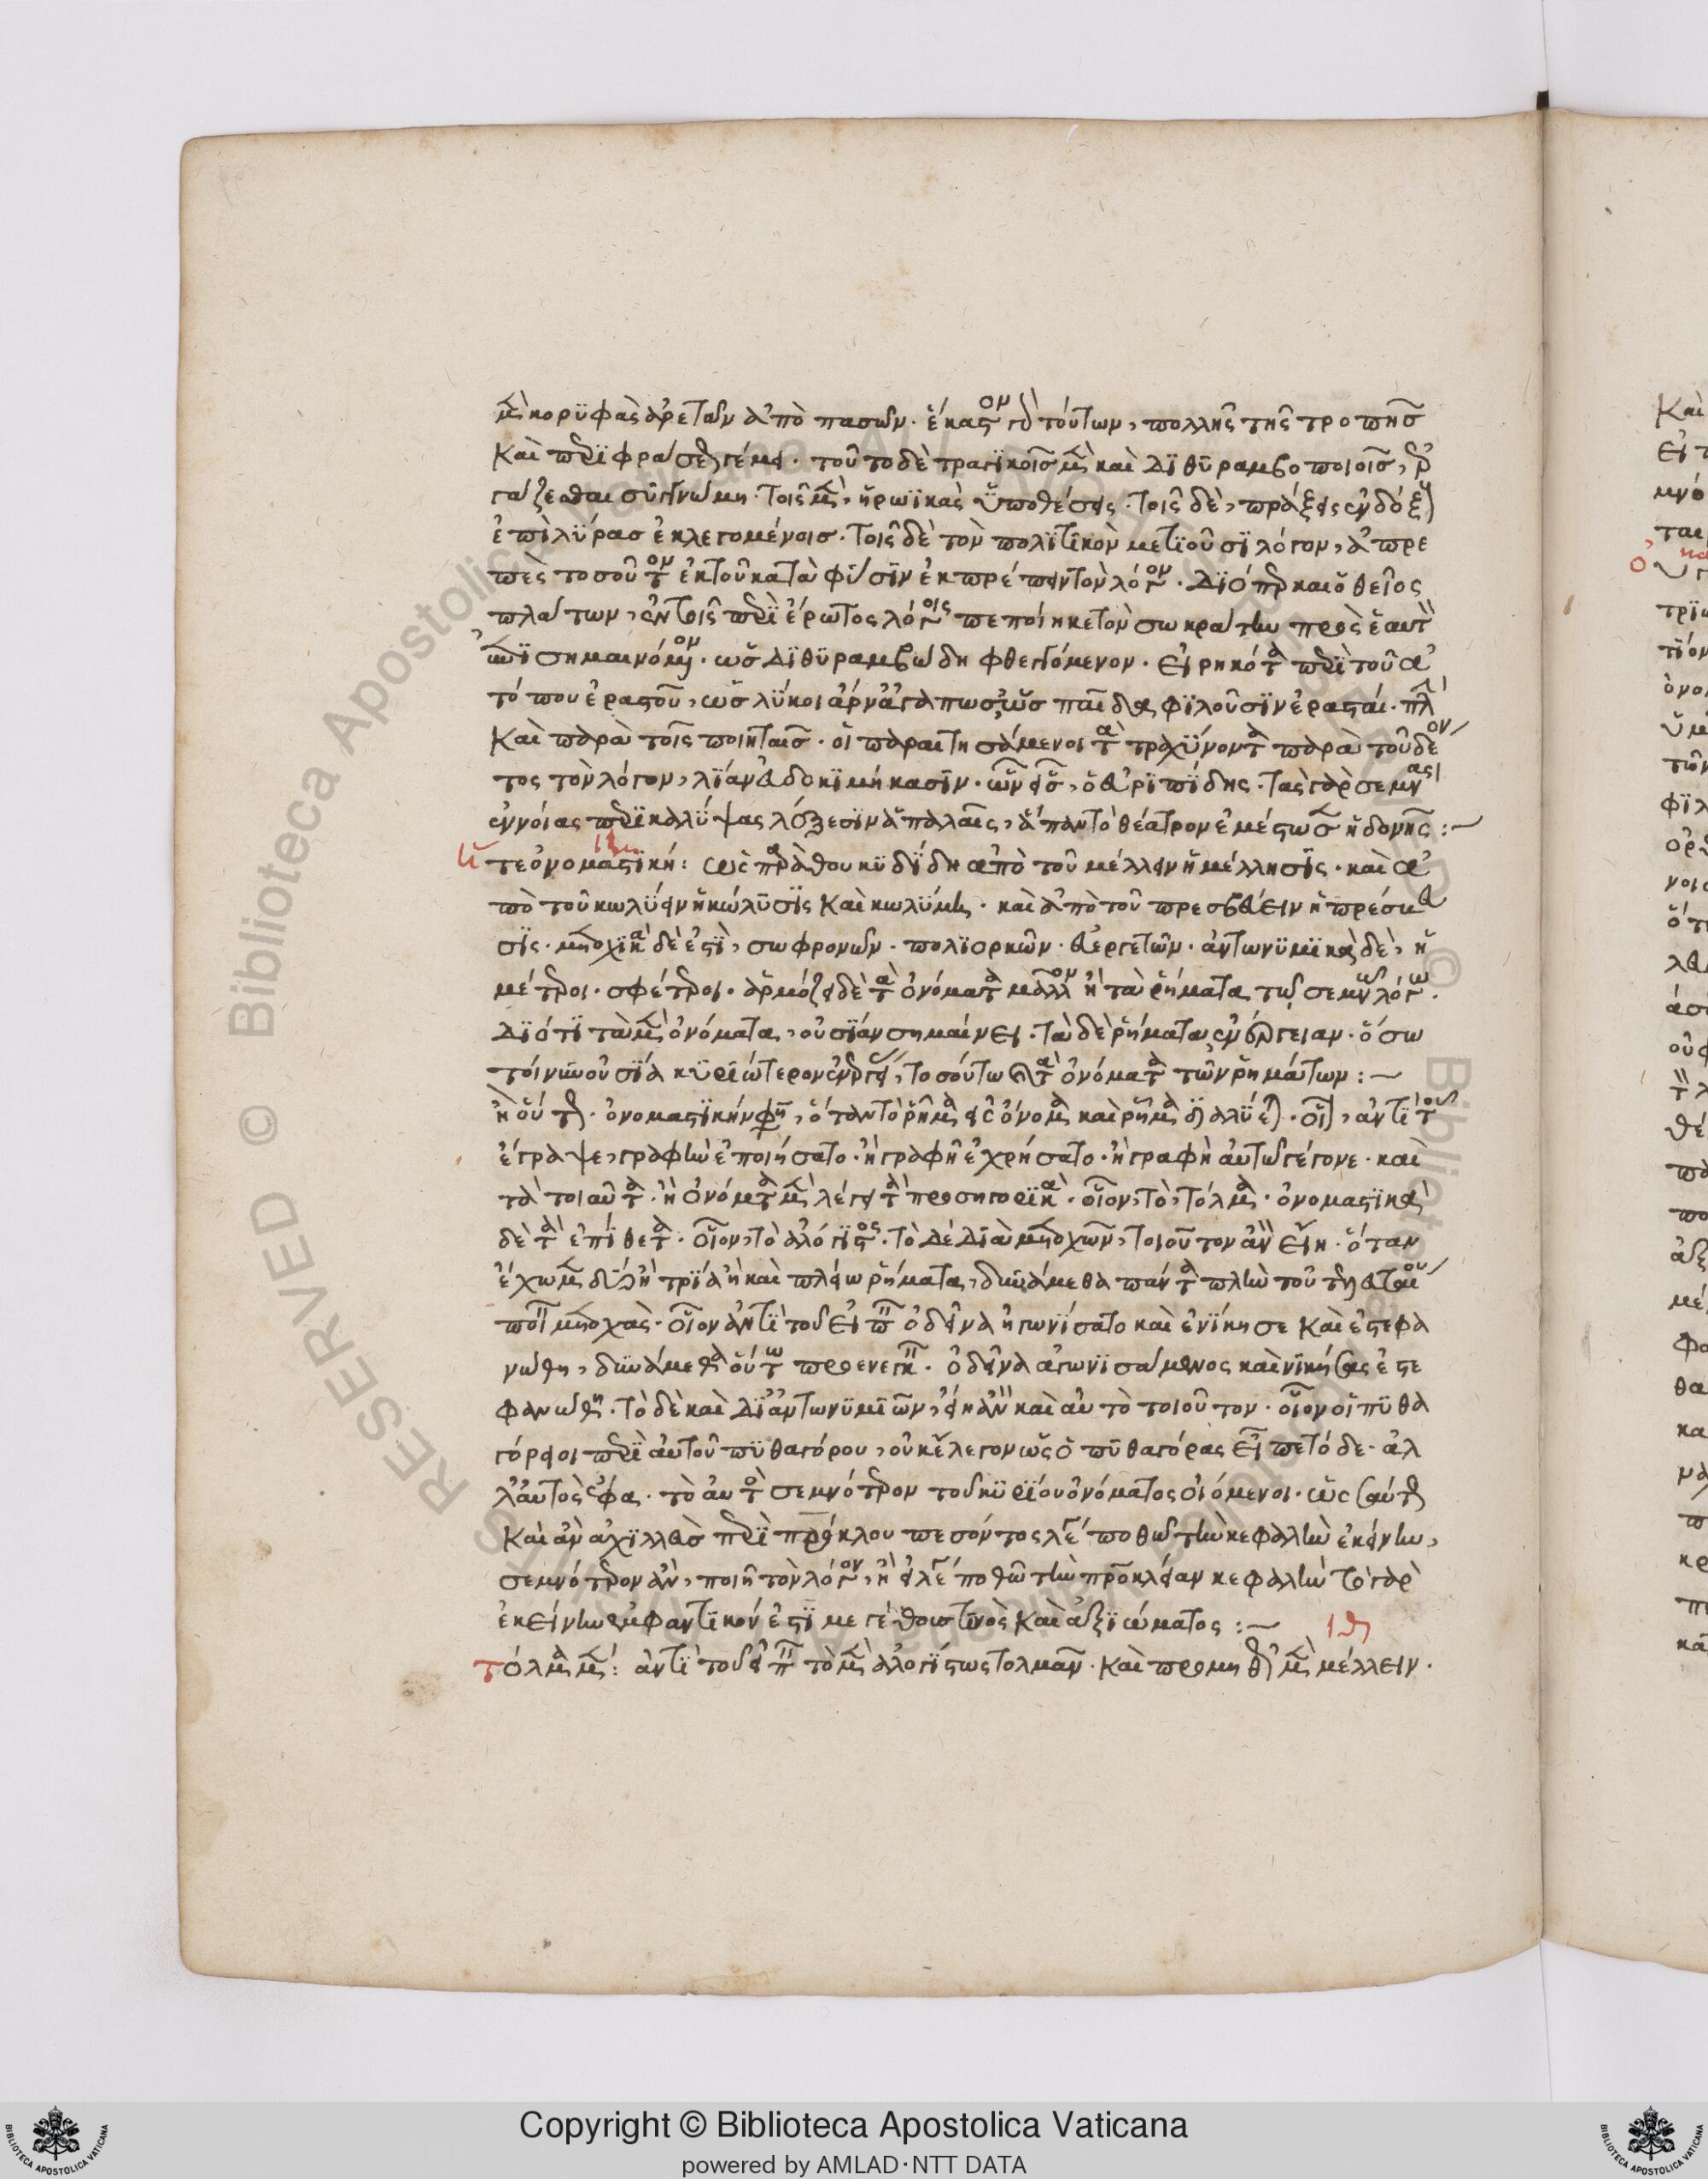 μὲν κορυφὰς ἀρετῶν ἀπὸ πασῶν. ἕκαστον γὰρ τούτων, πολλῆς τῆς τροπῆς
Καὶ περιφράσεως γέμει. τοῦτο δὲ τραγικοῖς μὲν καὶ διθυραμβοποιοῖς, ἐρ
γάζεσθαι συγγνώμη. τοῖς μὲν, ἡρωϊκὰς ὑποθέσεις. τοῖς δὲ, πράξεις ἐνδόξους
ἐπὶ λύρας ἐκλεγομένοις. τοῖς δὲ τὸν πολιτικὸν μετιοῦσι λόγον, ἀπρε
πὲς τοσοῦτον ἐκ τοῦ κατὰ φύσιν ἐκτρέπειν τὸν λόγον. διόπερ καὶ ὁ θεῖος
πλάτων, ἐν τοῖς περὶ ἔρωτος λόγοις πεποίηκε τὸν σωκράτην πρὸς ἑαυτὸν
ἐπισημαινόμενον. ὡς διθυραμβώδη φθεγγόμενον. εἰρηκότα περὶ τοῦ ἀ
τόπου ἐραστοῦ, ὡς λύκοι ἄρνα ἀγαπῶσιν, ὣς παῖδα φιλοῦσιν ἐρασταί. πλὴν
Καὶ παρὰ τοῖς ποιηταῖς. οἱ παραιτησάμενοι τὰ τραχύνοντα παρὰ τοῦ δέον
τος τὸν λόγον, λίαν εὐδοκιμήκασιν. ὧν εἷς, ὁ εὐριπίδης. τὰς γὰρ σεμνὰς
ἐννοίας περικαλύψας λέξεσιν ἁπαλαῖς, ἅπαν τὸ θέατρον ἐμέστωσεν ἡδονῆς:
ἥ τε ὀνομαστική: ὡς παρὰ θουκυδίδη ἀπὸ τοῦ μέλλειν ἡ μέλλησις. καὶ ἀ
πὸ τοῦ κωλύειν ἡ κώλυσις Καὶ κωλύμη. καὶ ἀπὸ τοῦ πρεσβεύειν ἡ πρέσβευ
σις. μετοχικὰ δέ ἐστι, σωφρονῶν. πολιορκῶν. εὐεργετῶν. ἀντωνυμικὰ δὲ, ἡ
μέτεροι. σφέτεροι. ἁρμόζει δὲ τὰ ὀνόματα μᾶλλον ἢ τὰ ῥήματα τῷ σεμνῷ λόγῳ.
διότι τὰ μὲν ὀνόματα, οὐσίαν σημαίνει. τὰ δὲ ῥήματα, ἐνέργειαν. ὅσω
τοίνυν οὐσία κυριώτερον ἐνεργείας, τοσούτω καὶ τὰ ὀνόματα τῶν ῥημάτων:
ἢ οὕτως. ὀνομαστικήν φησιν, ὅταν τὸ ῥῆμα εἰς ὄνομα καὶ ῥῆμα διαλύεται. οἷον, ἀντὶ τοῦ
ἔγραψε, γραφὴν ἐποιήσατο. ἢ γραφῇ ἐχρήσατο. ἢ γραφὴ αὐτῷ γέγονε. καὶ
τὰ τοιαῦτα. ἢ ὀνόματα μὲν λέγει τὰ προσηγορικὰ. οἷον, τὸ, τόλμα. ὀνομαστικὰ
δὲ τὰ ἐπίθετα. οἷον, τὸ ἀλόγιστος. τὸ δὲ διὰ μετοχῶν, τοιοῦτον ἂν εἴη. ὅταν
ἔχωμεν δύο ἢ τρία ἢ καὶ πλείω ῥήματα, δυνάμεθα πάντα πλὴν τοῦ τελευταίου
ποιεῖν μετοχάς. οἷον ἀντὶ τοῦ εἰπεῖν ὁ δεῖνα ἠγωνίσατο καὶ ἐνίκησε Καὶ ἐστεφα
νώθη, δυνάμεθα οὕτω προενεγκεῖν. ὁ δεῖνα ἀγωνισάμενος καὶ νικήσας ἐστε
φανώθη. τὸ δὲ καὶ δι' ἀντωνυμιῶν, εἴη ἂν καὶ αὐτὸ τοιοῦτον. οἷον οἱ πυθα
γόρειοι περὶ αὐτοῦ πυθαγόρου, οὐκ ἔλεγον ὡς ὁ πυθαγόρας εἶπε τόδε. ἀλ
λ' αὐτὸς ἔφα. τὸ αὐτὸ σεμνότερον τοῦ κυρίου ὀνόματος οἰόμενοι. ὡσαύτως
Καὶ ἂν ἀχιλλεὺς περὶ πατρόκλου πεσόντος λέγῃ ποθῶ τὴν κεφαλὴν ἐκείνην,
σεμνότερον ἂν, ποιῇ τὸν λόγον, ἢ εἰ λέγει ποθῶ τὴν πατρόκλειαν κεφαλήν τὸ γὰρ
ἐκείνην ἐμφαντικόν ἐστι μεγέθους τινὸς Καὶ ἀξιώματος:
τόλμα μὲν: ἀντὶ τοῦ εἰπεῖν τὸ μὲν ἀλογίστως τολμᾶν. Καὶ προμηθὲς μὲν μέλλειν.
Copyright © Biblioteca Apostolica Vaticana
powered by AMLAD·NTT DATA